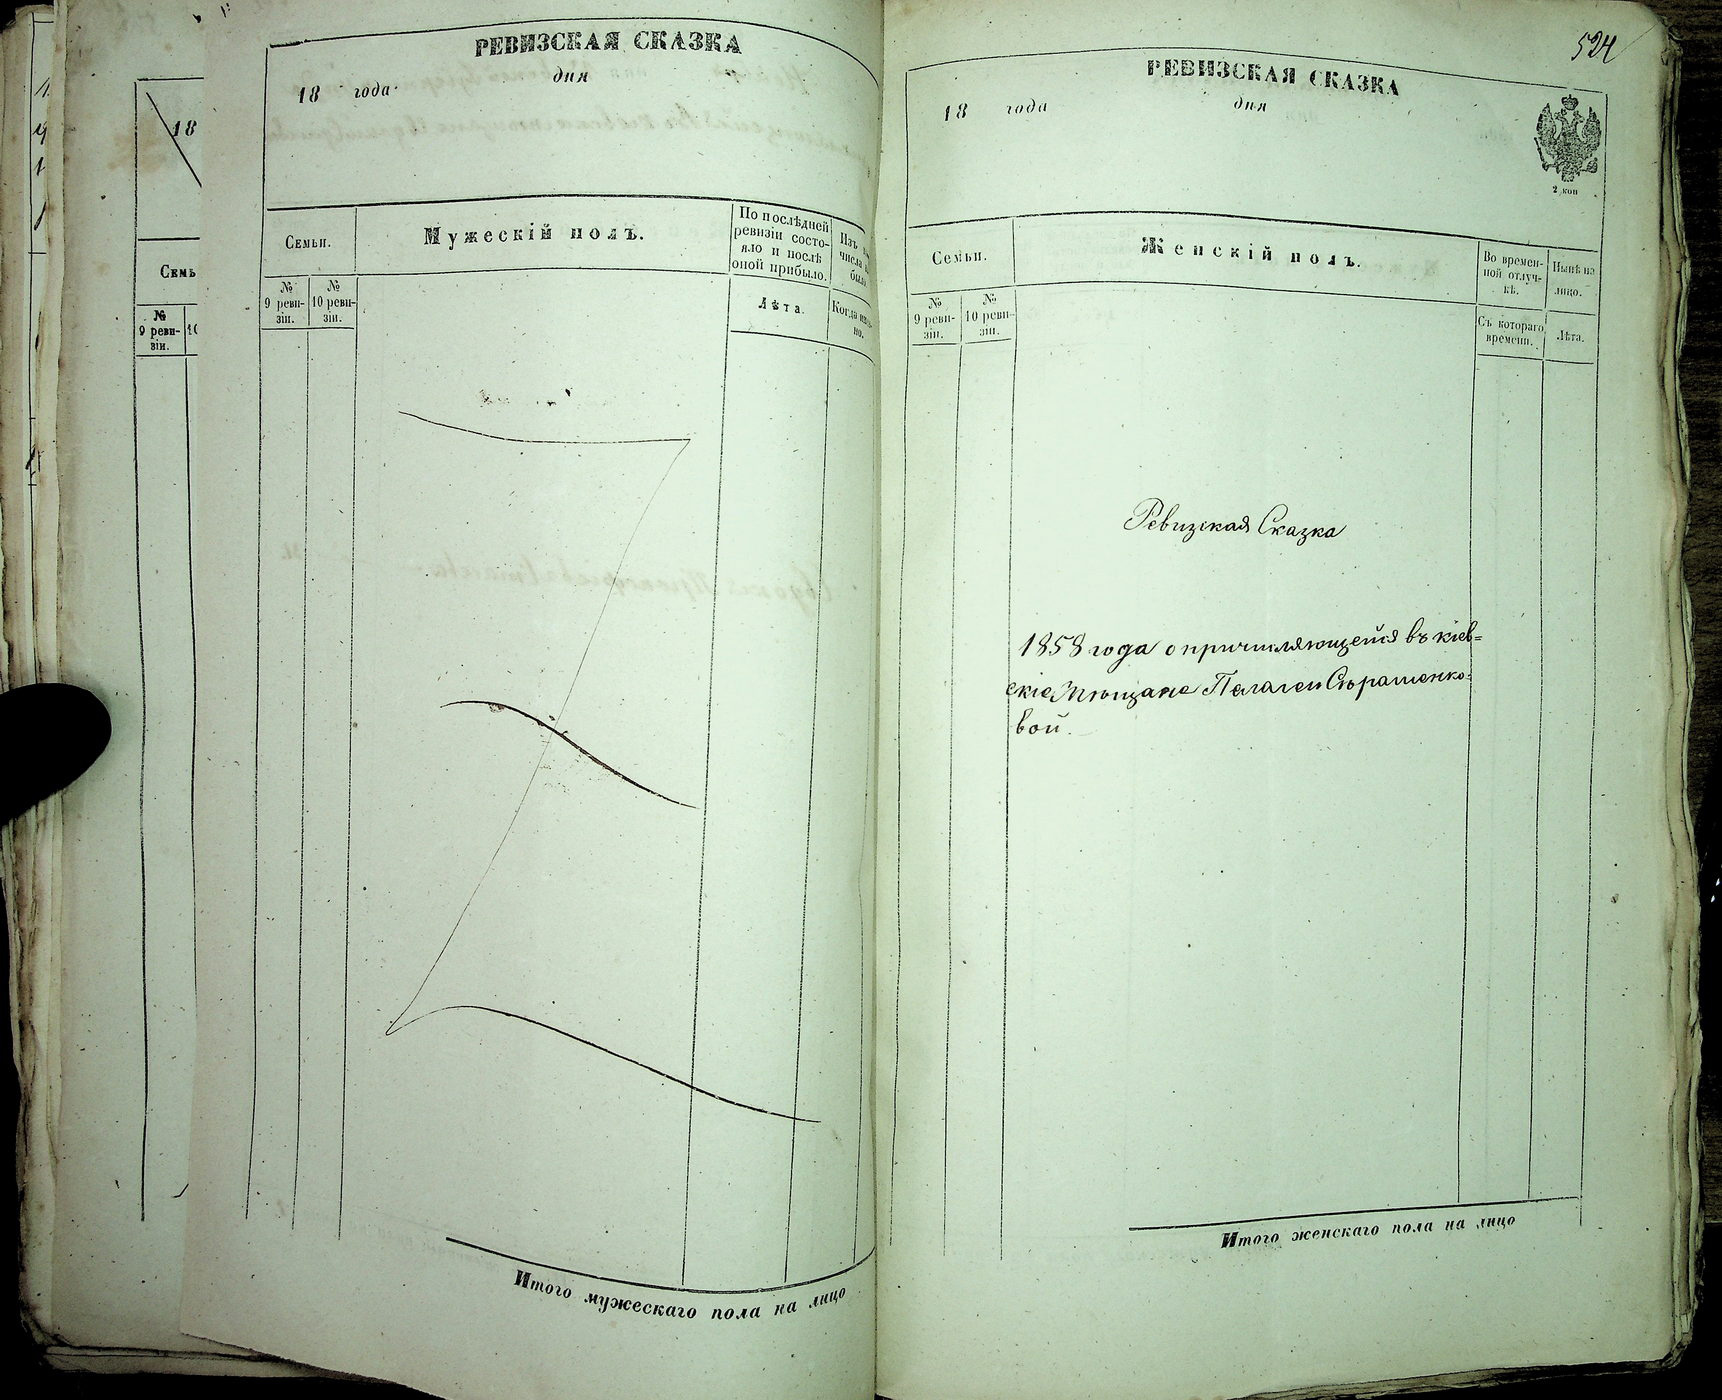 РЕВИЗСКАЯ СКАЗКА
18 года дня
Семьи.
Мужескій полъ.
По послѣдней
ревизіи состо-
яло и послѣ
оной прибыло.
Изъ
числа
было
№
9 реви-
зіи.
№
10 реви-
зіи.
Лѣта.
Когда
но.
Итого мужескаго пола на лицо
18
№
9 реви-
зіи.
524
РЕВИЗСКАЯ СКАЗКА
18 года дня
2 коп
Семьи.
Женскій полъ.
Во времен-
ной отлуч-
кѣ.
Нынѣ на
лицо.
№
9 реви-
зіи.
№
10 реви-
зіи.
Съ котораго
времени.
Лѣта.
Ревизская Сказка
1858 года о причисляющейся въ кіев=
скіе Мѣщане Пелагеи
вой.
Итого женскаго пола на лицо